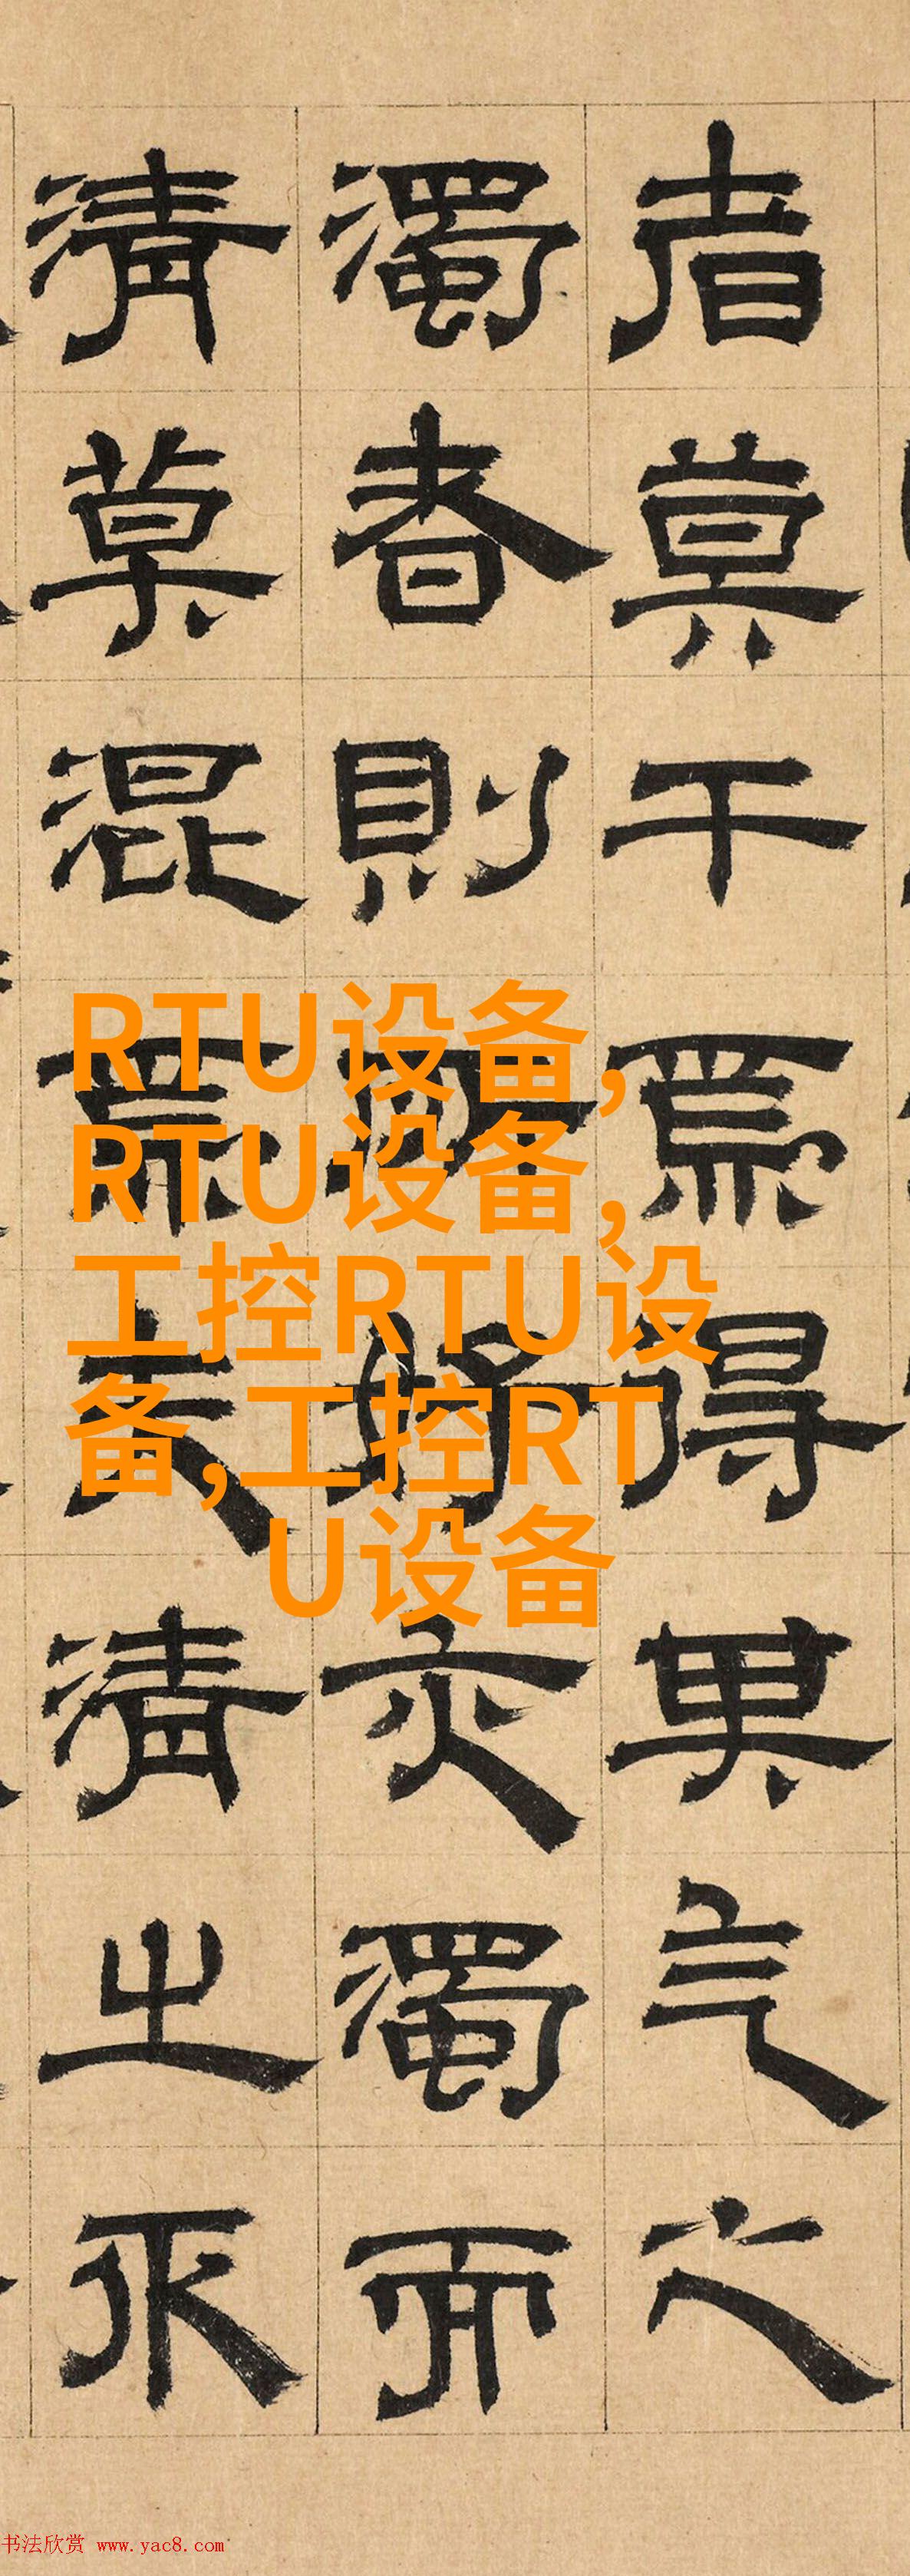 者莫干焉得其气之
濁者則亦濁而
清莫混焉清之
RTU设备,
RTU设备,
工控RTU设
备,工控RT
U设备
书法欣赏 www.yac8.com